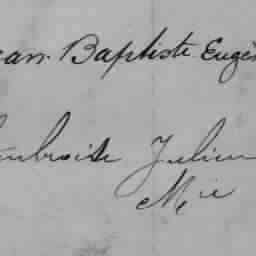 ean Baptiste Eugèn
Ambroise Julien
Mie